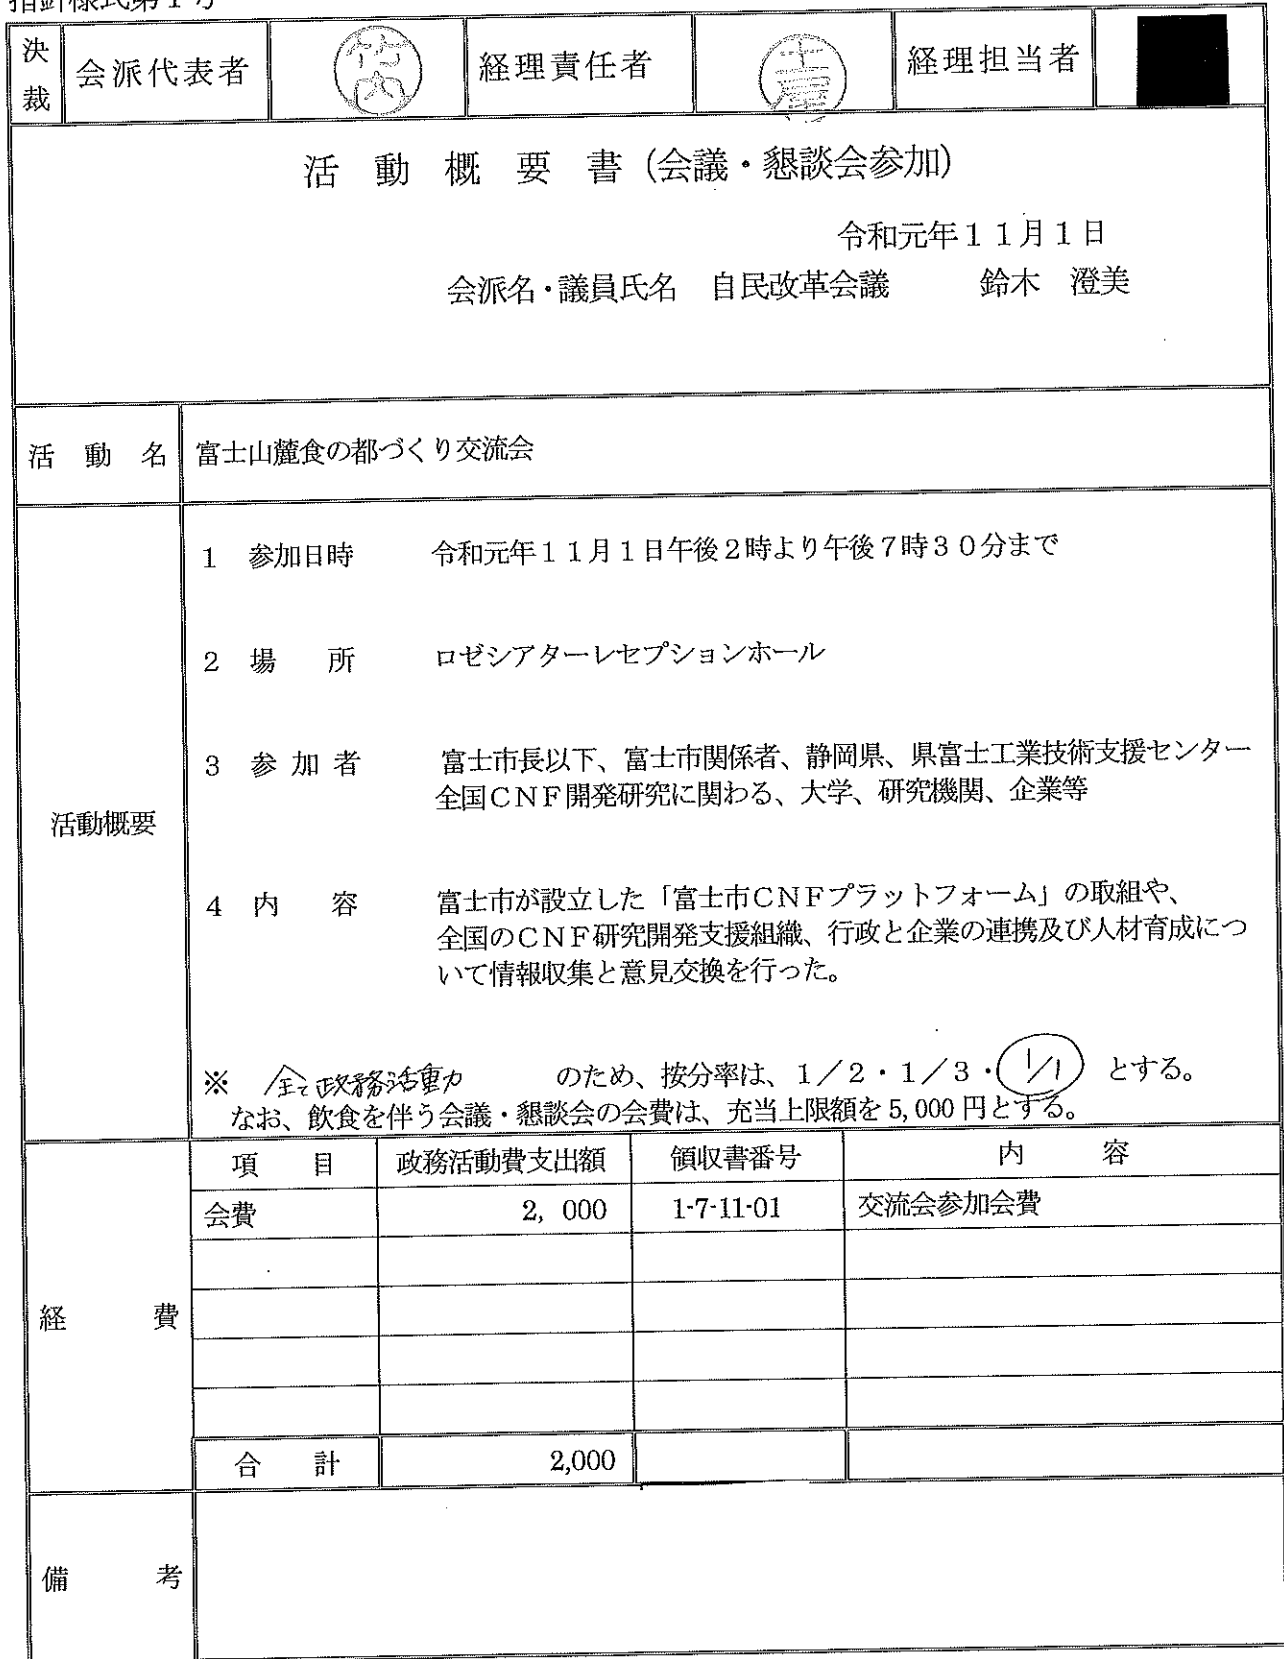 指針様式第1号
決裁 会派代表者 竹内 経理責任者 土屋 経理担当者
活動概要書(会議・懇談会参加)
令和元年11月1日
会派名・議員氏名 自民改革会議 鈴木 澄美
活動名 富士山麓食の都づくり交流会
活動概要
1 参加日時 令和元年11月1日午後2時より午後7時30分まで
2 場所 ロゼシアターレセプションホール
3 参加者 富士市長以下、富士市関係者、静岡県、県富士工業技術支援センター
全国CNF開発研究に関わる、大学、研究機関、企業等
4 内容 富士市が設立した「富士市CNFプラットフォーム」の取組や、
全国のCNF研究開発支援組織、行政と企業の連携及び人材育成につ
いて情報収集と意見交換を行った。
※ 全て政務活動 のため、按分率は、1/2・1/3・1/1 とする。
なお、飲食を伴う会議・懇談会の会費は、充当上限額を5,000円とする。
経費
項目 政務活動費支出額 領収書番号 内容
会費 2,000 1-7-11-01 交流会参加会費
合計 2,000
備考